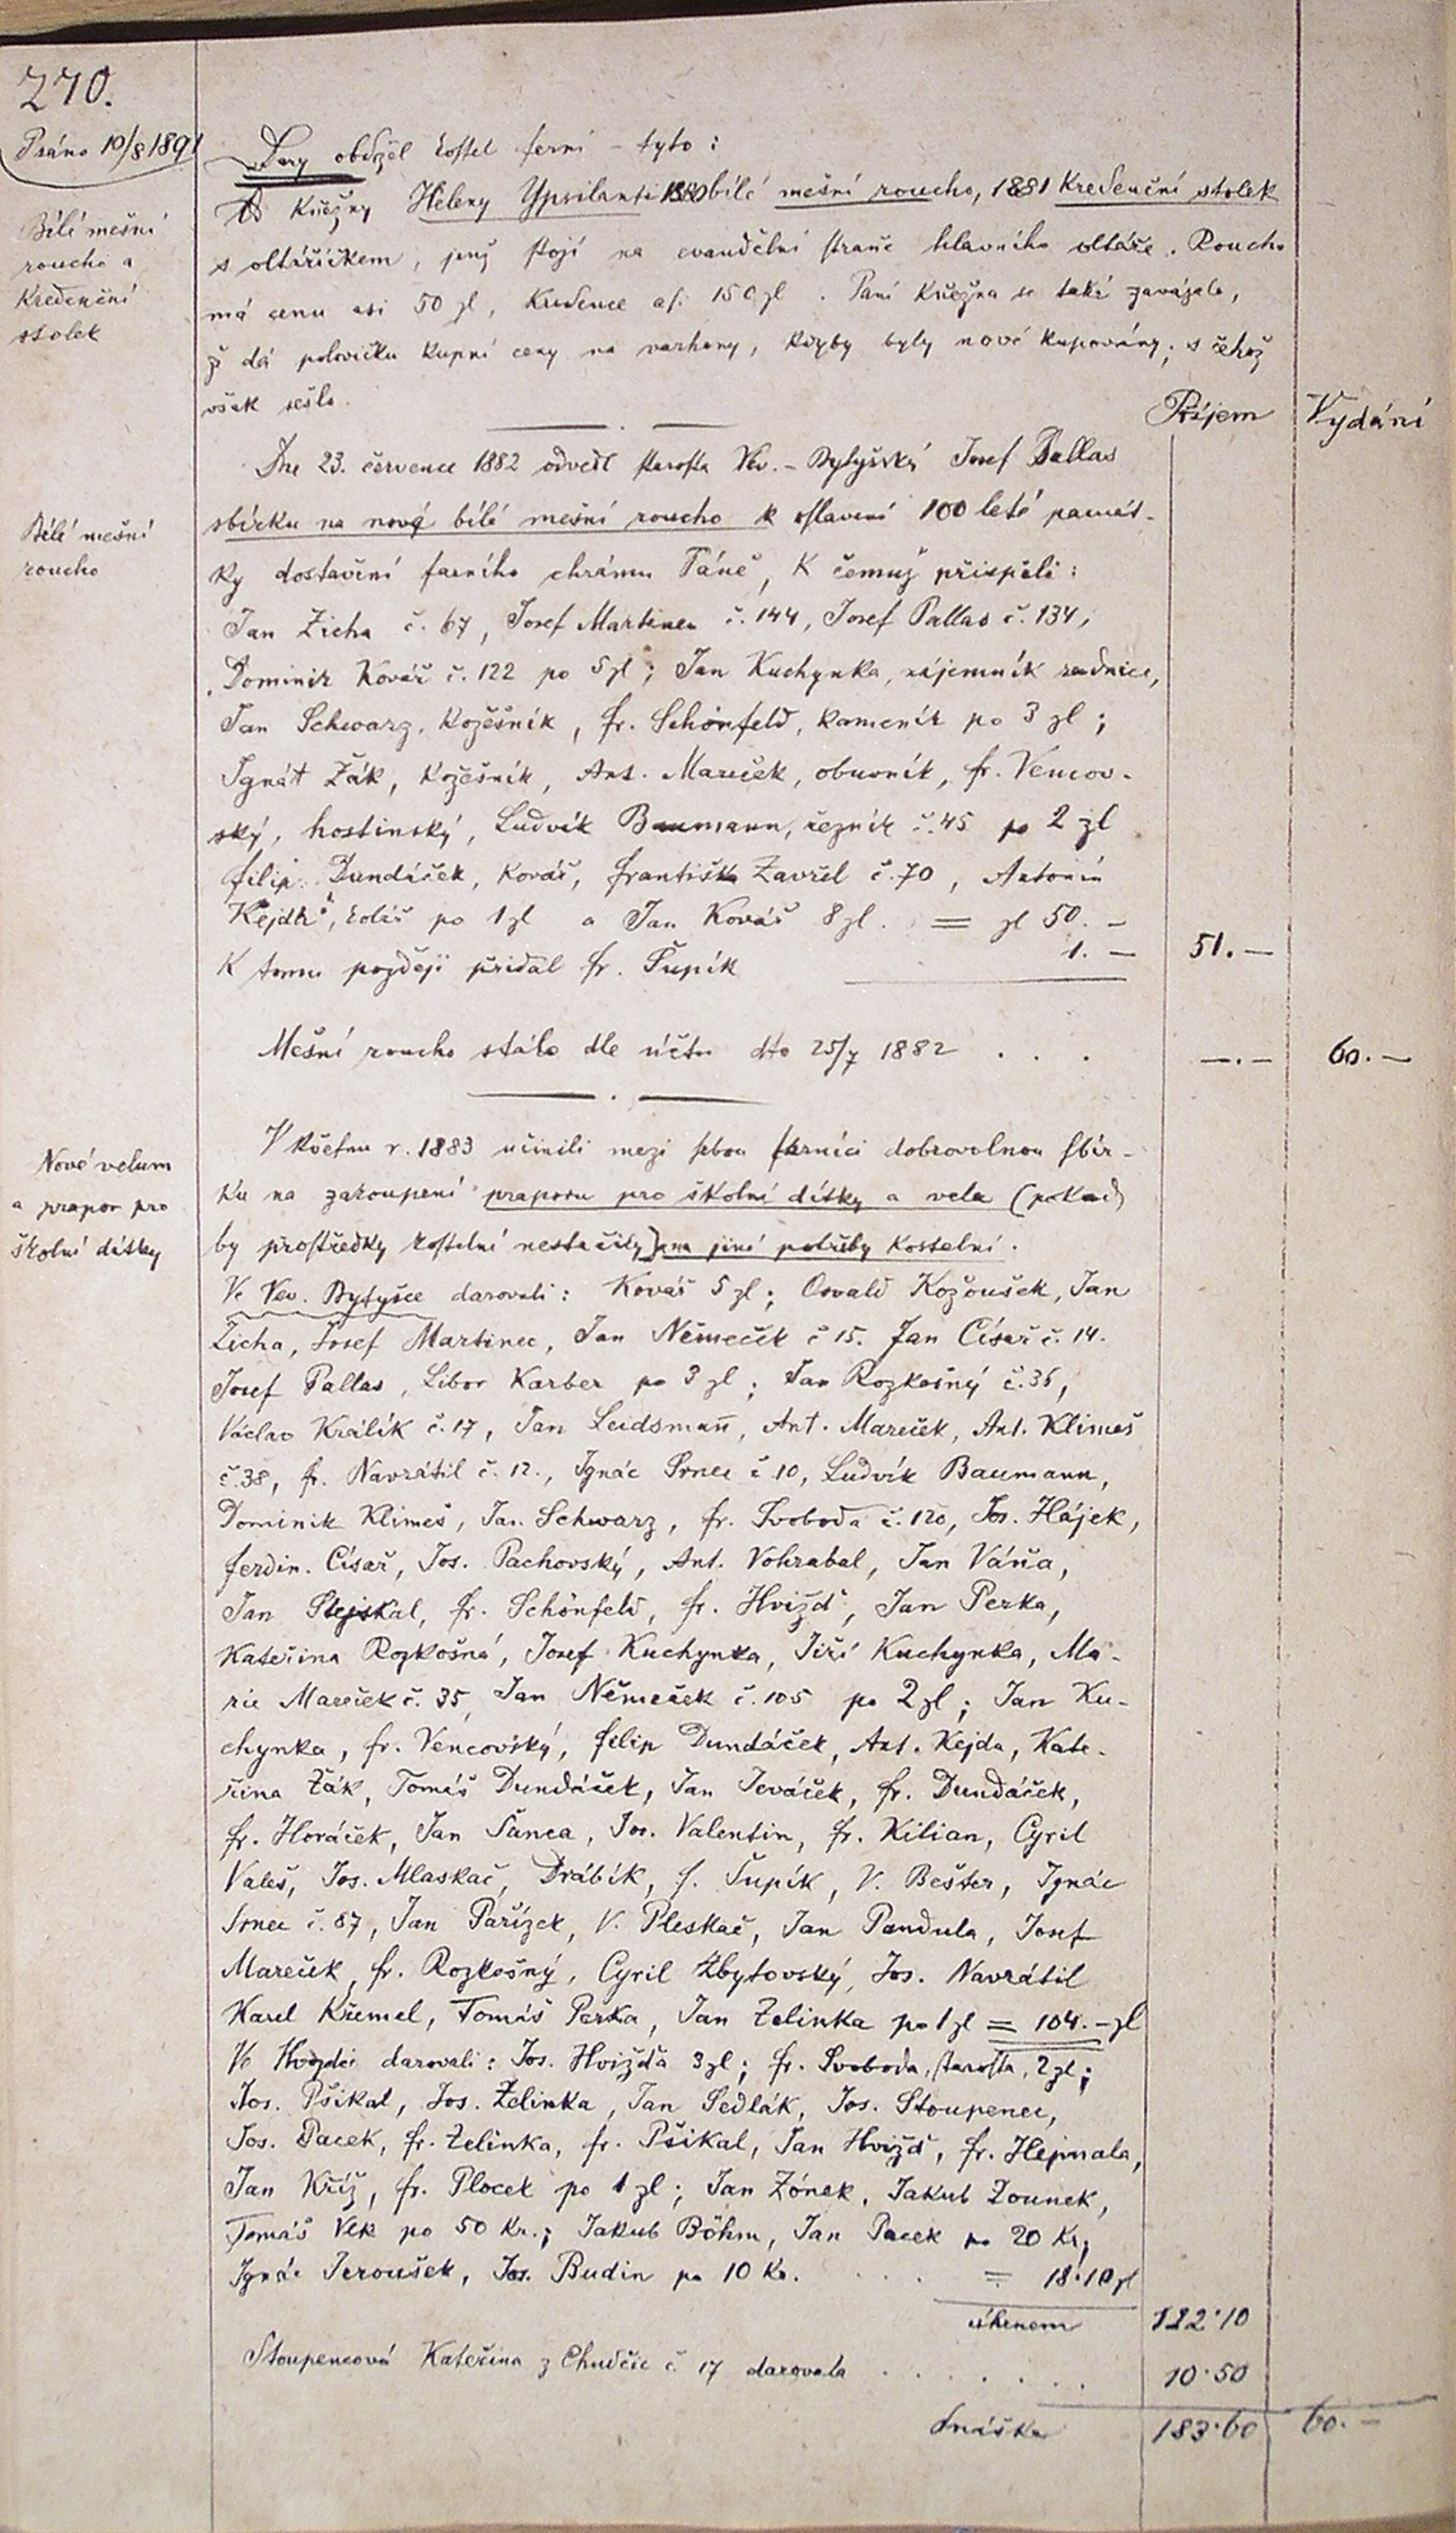 270.
Psáno 10/8 1891
Dary obdržel kostel farní – tyto:
Bílé mešní
roucho a
Kredenční
stolek
Od Kněžny Heleny Ypsilanti 1880 bílé mešní roucho, 1881 Kredenční stolek
s oltáříčkem, jenž stojí na evandělní straně hlavního oltáře. Roucho
má cenu asi 50 zl, Kredence asi 150 zl. Paní Kněžna se také zavázala,
že dá polovičku kupní ceny na varhany, kdyby byly nové kupovány; s čehož
však sešlo.
Příjem Vydání
Dne 23. července 1882 odvedl starosta Vev. - Bytyšský Josef Pallas
Bílé mešní
roucho
sbírku na nové bílé mešní roucho k oslavení 100 leté památ-
ky dostavění farního chrámu Páně, K čemuž přispěli:
Jan Zicha č. 67, Josef Martinec č. 144, Josef Pallas č. 134,
Dominik Kovář č. 122 po 5 zl; Jan Kuchynka, nájemník radnice,
Jan Schwarz, Kožešník, fr. Schönfeld, kameník po 3 zl;
Ignát Žák, Kožešník, Ant. Mareček, obuvník, fr. Vencov-
ský, hostinský, Ludvík Baumann, řezník č. 45 po 2 zl
filip Dundáček, Kovář, františka Zavřel č. 70, Antonín
Kejda, kolář po 1 zl a Jan Kovář 8 zl. = zl 50. –
K tomu později přidal fr. Šupík 1. – 51. –
Mešní roucho stálo dle účtu dto 25/7 1882 . . . –.– 60. –
Nové velum
a prapor pro
školní dítky
V Květnu r. 1883 učinili mezi sebou farníci dobrovolnou sbír-
ku na zakoupení praporu pro školní dítky a vela (pokud
by prostředky kostelní nestačily) a na jiné potřeby kostelní.
Ve Vev. Bytyšce darovali: Kovář 5 zl; Osvald Kožoušek, Jan
Zicha, Josef Martinec, Jan Němeček č 15. Jan Císař č. 14.
Josef Pallas, Libor Karber po 3 zl; Jan Rozkošný č. 36,
Václav Králík č. 17, Jan Leidsmañ, Ant. Mareček, Ant. Klimeš
č. 38, fr. Navrátil č. 12., Ignác Srnec č 10, Ludvík Baumann,
Dominik Klimeš, Jan Schwarz, fr. Svoboda č. 120, Jos. Hájek,
ferdin. Císař, Jos. Pachovský, Ant. Vohrabal, Jan Váňa,
Jan Stejskal, fr. Schönfeld, fr. Hvížď, Jan Perka,
Kateřina Rozkošná, Josef Kuchynka, Jiří Kuchynka, Ma-
rie Mareček č. 35, Jan Němeček č. 105 po 2 zl; Jan Ku-
chynka, fr. Vencovský, filip Dundáček, Ant. Kejda, Kate-
řina Žák, Tomáš Dundáček, Jan Ieváček, fr. Dundáček,
fr. Horáček, Jan Šanca, Jos. Valentin, fr. Kilian, Cyril
Valeš, Jos. Mlaskač, Drábík, f. Šupík, V. Bešter, Ignác
Srnec č. 87, Jan Pařízek, V. Pleskač, Jan Pandula, Josef
Mareček, fr. Rozkošný, Cyril Zbytovský, Jos. Navrátil
Karel Křemel, Tomáš Perka, Jan Zelinka po 1 zl = 104. – zl
Ve Hvozdci darovali: Jos. Hvížďa 3 zl; fr. Svoboda, starosta, 2 zl;
Jos. Pšikal, Jos. Zelinka, Jan Sedlák, Jos. Stoupenec,
Jos. Pacek, fr. Zelinka, fr. Pšikal, Jan Hvížď, fr. Hejmala,
Jan Kříž, fr. Plocek po 1 zl; Jan Zónek, Jakub Zounek,
Tomáš Vlk po 50 Kr.; Jakub Böhm, Jan Pacek po 20 Kr;
Ignác Jeroušek, Jos. Budin po 10 Kr. . . . = 18·10 zl
úhrnem 122·10
Stoupencová Kateřina z Chudčic č. 17 darovala . . . . . . 10·50
Snáška 183·60 60. –